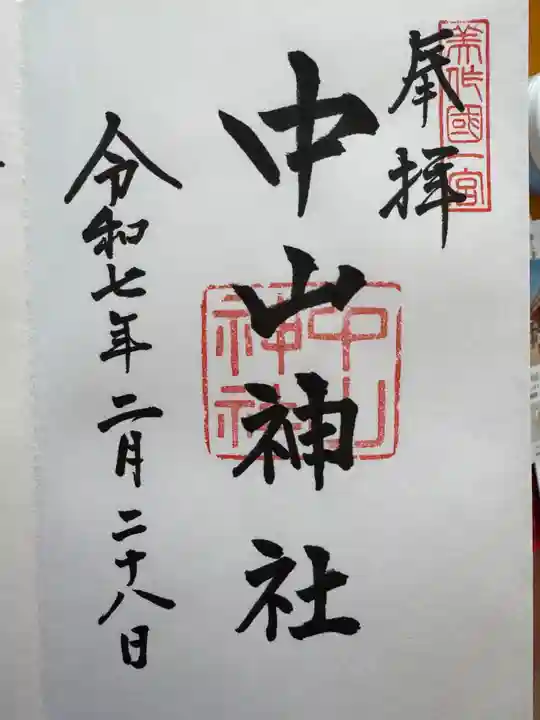 奉拝
美作國一宮
中山神社
中山神社
令和七年二月二十八日